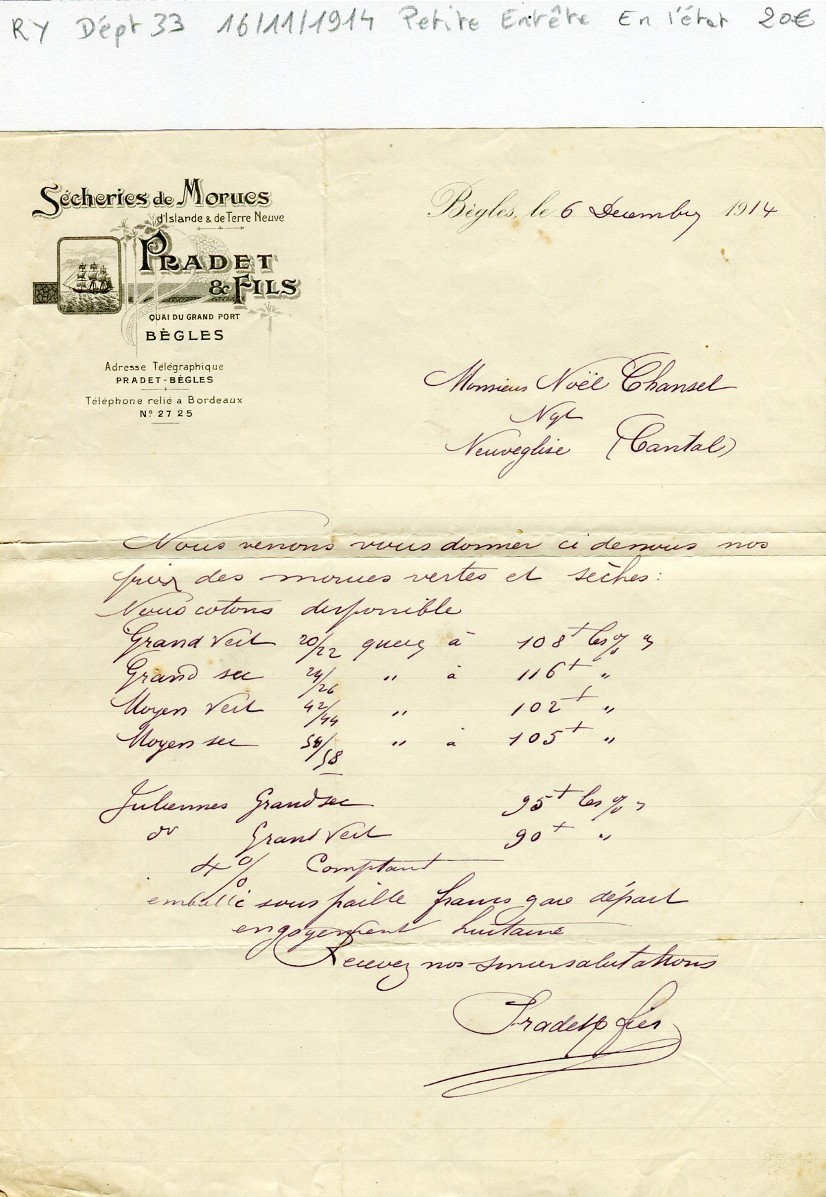 RY Dépt 33 16/11/1914 Petite Entête En l'état 20€
Sécheries de Morues
d'Islande & de Terre Neuve
PRADET
& FILS
QUAI DU GRAND PORT
BÈGLES
Adresse Télégraphique
PRADET-BÈGLES
Téléphone relié à Bordeaux
Nº 27 25
Bègles, le 6 Decembre 1914
Monsieur Noël Chansel
Ngt
Neuvéglise (Cantal)
Nous venons vous donner ci dessous nos
prix des morues vertes et sèches:
Nous cotons disponible
Grand Vert 20/22 queues à 108 + les % "
Grand sec 24/26 " à 116 + "
Moyen Vert 42/44 " 102 + "
Moyen sec 54/58 " à 105 + "
Juliennes Grand sec 95 + les % "
do Grand Vert 90 + "
4 % Comptant
emballé sous paille franco gare départ
engagement huitaine
Recevez nos sincères salutations
Pradet & fils